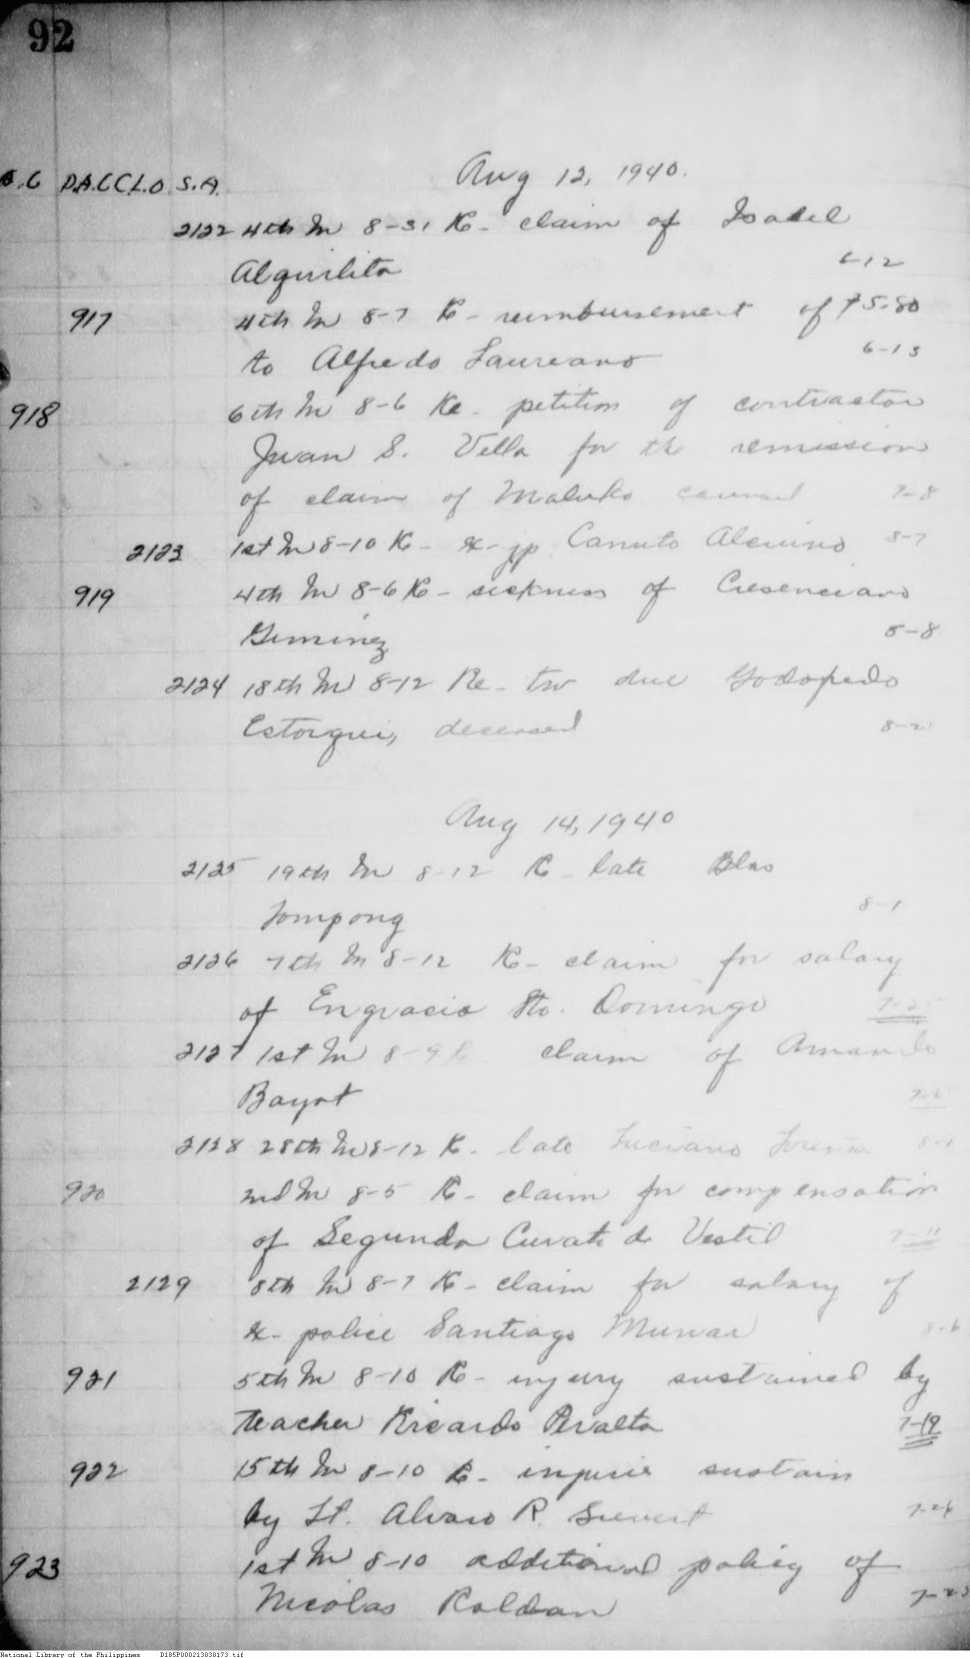 92
Aug 12, 1940.
S.C D.A.C C.L.O S.A.
2122 4th In 8-31 Re- claim of Isabel
Alquilita 6-12
917 4th In 8-7 Re- reimbursement of ₱5.80
to Alfredo Laureano 6-13
918 6th In 8-6 Re- petition of contractor
Juan S. Vella for the remission
of claim of Maluko council 7-8
2123 1st In 8-10 Re- ex-jp Canuto 8-7
919 4th In 8-6 Re- sickness of Cresenciano
Giminez 8-8
2124 18th In 8-12 Re- tw due Godofredo
Estorgui, deceased 8-2
Aug 14, 1940
2125 19th In 8-12 Re- late Blas
Tompong 8-1
2126 7th In 8-12 Re- claim for salary
of Engracio Sto. Domingo 7-25
2127 1st In 8-9 claim of Amando
Bayot
2128 28th In 8-12 Re- late Luciano
920 2nd In 8-5 Re- claim for compensation
of Segunda de Vestil 7-11
2129 8th In 8-7 Re- claim for salary of
ex-police Santiago Munar 8-6
921 5th In 8-10 Re- injury sustained by
teacher Ricardo Peralta 7-19
922 15th In 8-10 Re- injurie sustain
by Lt. Alvaro R. 7-26
923 1st In 8-10 additional policy of
Nicolas Roldan 7-23
National Library of the Philippines D185P000213030173.tif